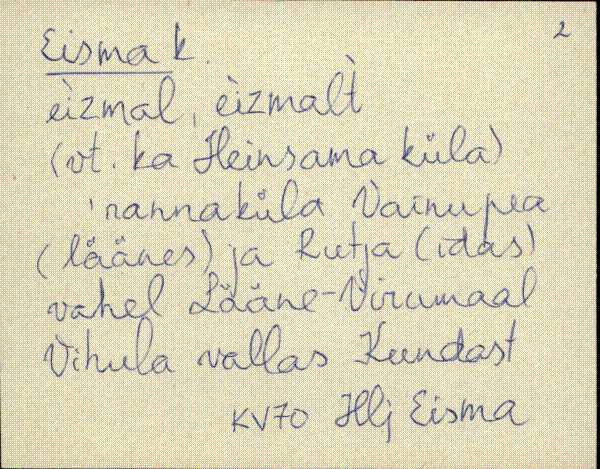 2
Eisma k.
èizmàl, èizmalt̀
(vt. ka Heinsama küla)
'rannaküla Vainupea
(läänes) ja Rutja (idas)
vahel Lääne-Virumaal
Vihula vallas Kundast
KV70 Hlj Eisma